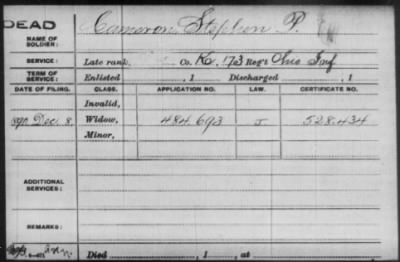 DEAD
NAME OF SOLDIER: Cameron, Stephen P.
SERVICE: Late rank, Co. K, 173 Reg't Ohio Inf
TERM OF SERVICE: Enlisted , 1 Discharged , 1
DATE OF FILING. CLASS. APPLICATION NO. LAW. CERTIFICATE NO.
Invalid,
Dec. 8. Widow, 484.693 J 528.434
Minor,
ADDITIONAL SERVICES:
REMARKS:
Died , 1 , at